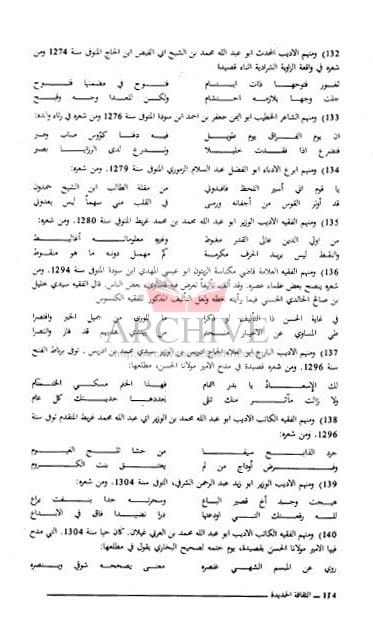 132) ومنهم الاديب المحدث ابو عبد الله محمد بن الشيخ ابي الفيض ابن الحاج المتوفى سنة 1274 ومن
شعره في واقعة الزاوية الشرادية اثناء قصيدة
ثغور فتوجها ذات ابتسام فتوح في مضمنها فتوح
جلت وجها يلازمه احتشام ولكن للعدا وجه وقيح
133) ومنهم الشاعر الخطيب ابو ايمن جعفر بن احمد ابن سودة المتوفى سنة 1276 ومن شعره في رثاء والده:
ان يوم الفراق يوم طويل فيه دقنا كؤوس صاب ومر
فتضرع اذا فقدت خليلا وتدرع لدى الرزايا بصبر
134) ومنهم ابرع الادباء ابو الفضل عبد السلام الزموري المتوفى سنة 1279. ومن شعره:
يا قوم اني أسير اللحظ فافدوني من مقلة الطالب ابن الشيخ حمدون
قد أوتر القوس من أجفانه ورمى في القلب مني سهما ليس يعدوني
135) ومنهم الفقيه الاديب الوزير ابو عبد الله محمد بن محمد غريط المتوفى سنة 1280. ومن شعره:
من اولي الدين عالي القدر مغبوط وغيره معلوماته أغاليط
والنقط ليس يزيد الحرف مكرمة كم مهمل دونه ما هو منقوط
136) ومنهم الفقيه العلامة قاضي مكناسة الزيتون ابو عيسى المهدي ابن سودة المتوفى سنة 1294. ومن
شعره ينصح بعض طلماء عصره. وقد ألف تأليفا تعرض فيه لمساوي بعض الناس. قال الفقيه سيدي خليل
بن صالح الخالدي الحسني فيما رأيته بخطه ولعل التأليف المذكور للفقيه الكنسوس
في غاية الحسن ذا التأليف لو ذكرا للورى من جميل الخير واقتصرا
طي المساوي عن الاخيار من يقتدي بهديهم قد فاز وانتصرا
137) ومنهم الاديب البارع ابو العلاء الحاج ادريس بن الوزير سيدي محمد بن ادريس. توفي برباط الفتح
سنة 1296. ومن شعره قصيدة في مدح الامير مولانا الحسن، مطلعها:
لك الإسعاد يا بدر التمام فهذا الختم مسكي الختام
ولا زالت مآثر منك تتلى يجددها حديثك كل عام
138) ومنهم الفقيه الكاتب الاديب ابو عبد الله محمد بن الوزير ابي عبد الله محمد غريط المتقدم توفي سنة
1296. ومن شعره:
جرد القابح سيفا من حشا ثلج الغيوم
وفرض أوداج من لم يعتنق بنت الكروم
139) ومنهم الاديب الوزير ابو زيد عبد الرحمن الشرفي، التوفى سنة 1304. ومن شعره:
هيجت وجد أخ قصير الباع وسحرته جدا بنفث يراع
لله رقعتك التي اودعتها درا نضيدا فاق في الابداع
140) ومنهم الفقيه الكاتب الاديب ابو عبد الله محمد بن العربي غيلان. كان حيا سنة 1304. التي مدح
فيها الامير مولانا الحسن بقصيدة، يوم ختمه لصحيح البخاري يقول في مطلعها:
روي عن المبسم الشهي مخبره معنى يصححه شوقي وينصره
114 - الثقافة الجديدة
ARCHIVE